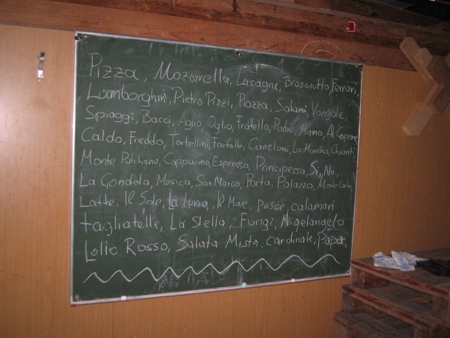 Pizza, Mozarella, Lasagne, Brosciutto, Ferrari,
Lamborghini, Pietro Pizzi, Piazza, Salami, Vongole,
Spiaggi, Bacci, Aglio, Oglio, Fratello, Padre, Mama, Al Capone
Caldo, Freddo, Tortellini, Farfalle, Caneloni, La Mancha, Chianti
Monte Pulchano, Cappucino, Espresso, Principessa, Si, No,
La Gondola, Musica, San Marco, Porta, Palazzo, Monte Carlo,
Latte, Il Sole, La luna, Il Mae, pesce, calamari
tagliatelle, La Stella, Fungi, Migelangelo
Lollo Rosso, Salata Mista, cardinale, Papa,